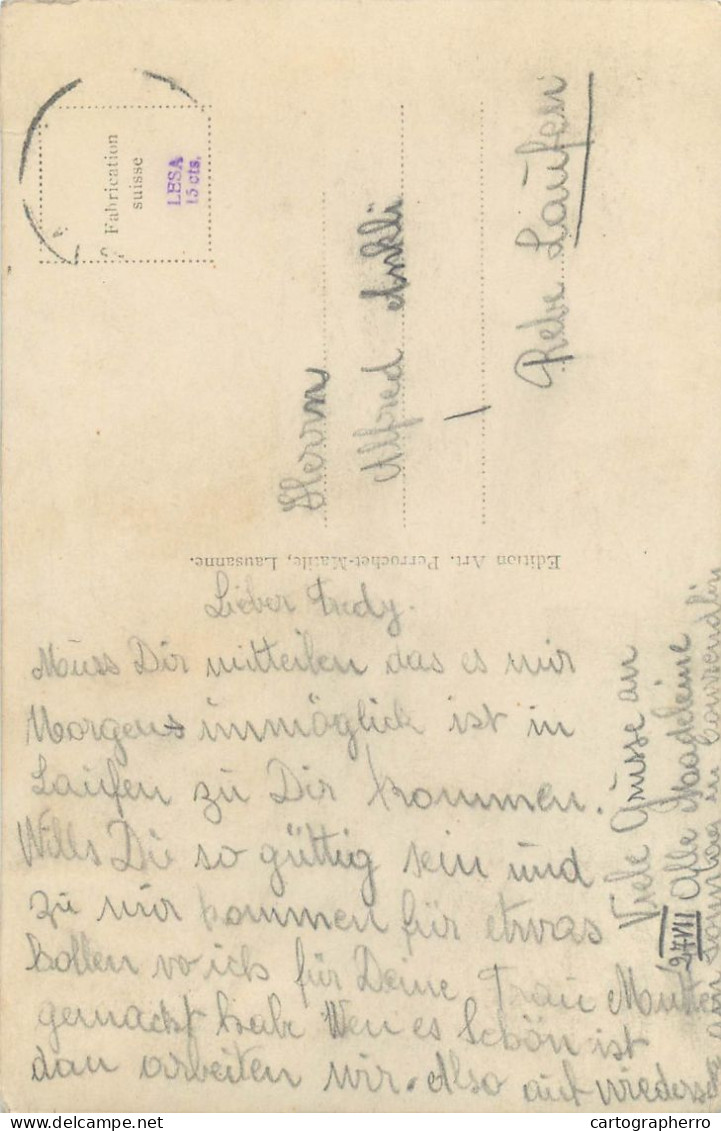 Fabrication
suisse
LESA
15 cts.
Herrn
Alfred Ankli
Rebe Laufen
Edition Art. Perrochet-Matile, Lausanne.
Lieber Fredy.
Muss Dir mitteilen das es mir
Morgens immöglich ist in
Laufen zu Dir kommen.
Wills Die so güttig sein und
zu mir kommen für etwas
hollen vo ich für Deine Frau Mutter
gemackt habe Wen es Schön ist
dan arbeiten wir. Also auf wiederse
Viele Grüsse an
Alle Madeleine
am Samstag in Courrendlin
cartographerro